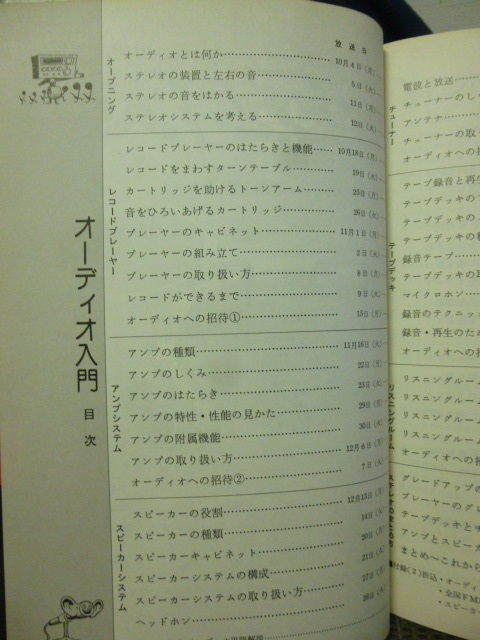 オーディオ入門
目次
放送日
オープニング
オーディオとは何か 10月4日(月)
ステレオの装置と左右の音 5日(火)
ステレオの音をはかる 11日(月)
ステレオシステムを考える 12日(火)
レコードプレーヤー
レコードプレーヤーのはたらきと機能 10月18日(月)
レコードをまわすターンテーブル 19日(火)
カートリッジを助けるトーンアーム 25日(月)
音をひろいあげるカートリッジ 26日(火)
プレーヤーのキャビネット 11月1日(月)
プレーヤーの組み立て 2日(火)
プレーヤーの取り扱い方 8日(月)
レコードができるまで 9日(火)
オーディオへの招待① 15日(月)
アンプシステム
アンプの種類 11月16日(火)
アンプのしくみ 22日(月)
アンプのはたらき 23日(火)
アンプの特性・性能の見かた 29日(月)
アンプの附属機能 30日(火)
アンプの取り扱い方 12月6日(月)
オーディオへの招待② 7日(火)
スピーカーシステム
スピーカーの役割 12月13日(月)
スピーカーの種類 14日(火)
スピーカーキャビネット 20日(月)
スピーカーシステムの構成 21日(火)
スピーカーシステムの取り扱い方 27日(月)
ヘッドホン 28日(火)
チューナー
電波と放送
チューナーのしく
アンテナ
チューナーの取り
オーディオへの招
テープデッキ
テープ録音と再生
テープデッキの
テープデッキの
テープデッキの
録音テープ
テープデッキの
マイクロホン
録音のテクニッ
録音・再生のため
オーディオへの招
リスニングルーム
リスニングルーム
リスニングルーム
リスニングルーム
リスニングルーム
オーディオへの招
グレードアップの
プレーヤーのグレ
テープデッキと
アンプとスピーカ
まとめ〜これから
■付録(2)折込・オーディ
・全国FM
・スピーカ